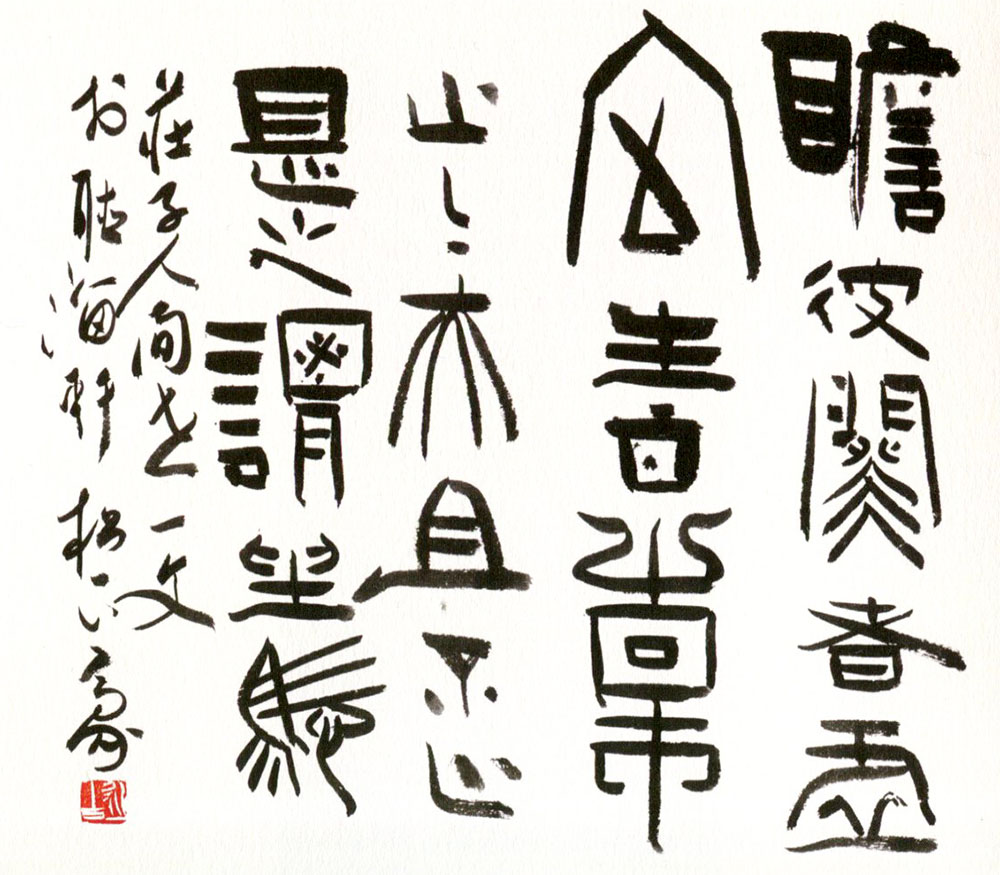 瞻彼闋者虛
室生白吉祥
止〻夫且不止
是之謂坐馳
莊子人間世一文
於聽海軒